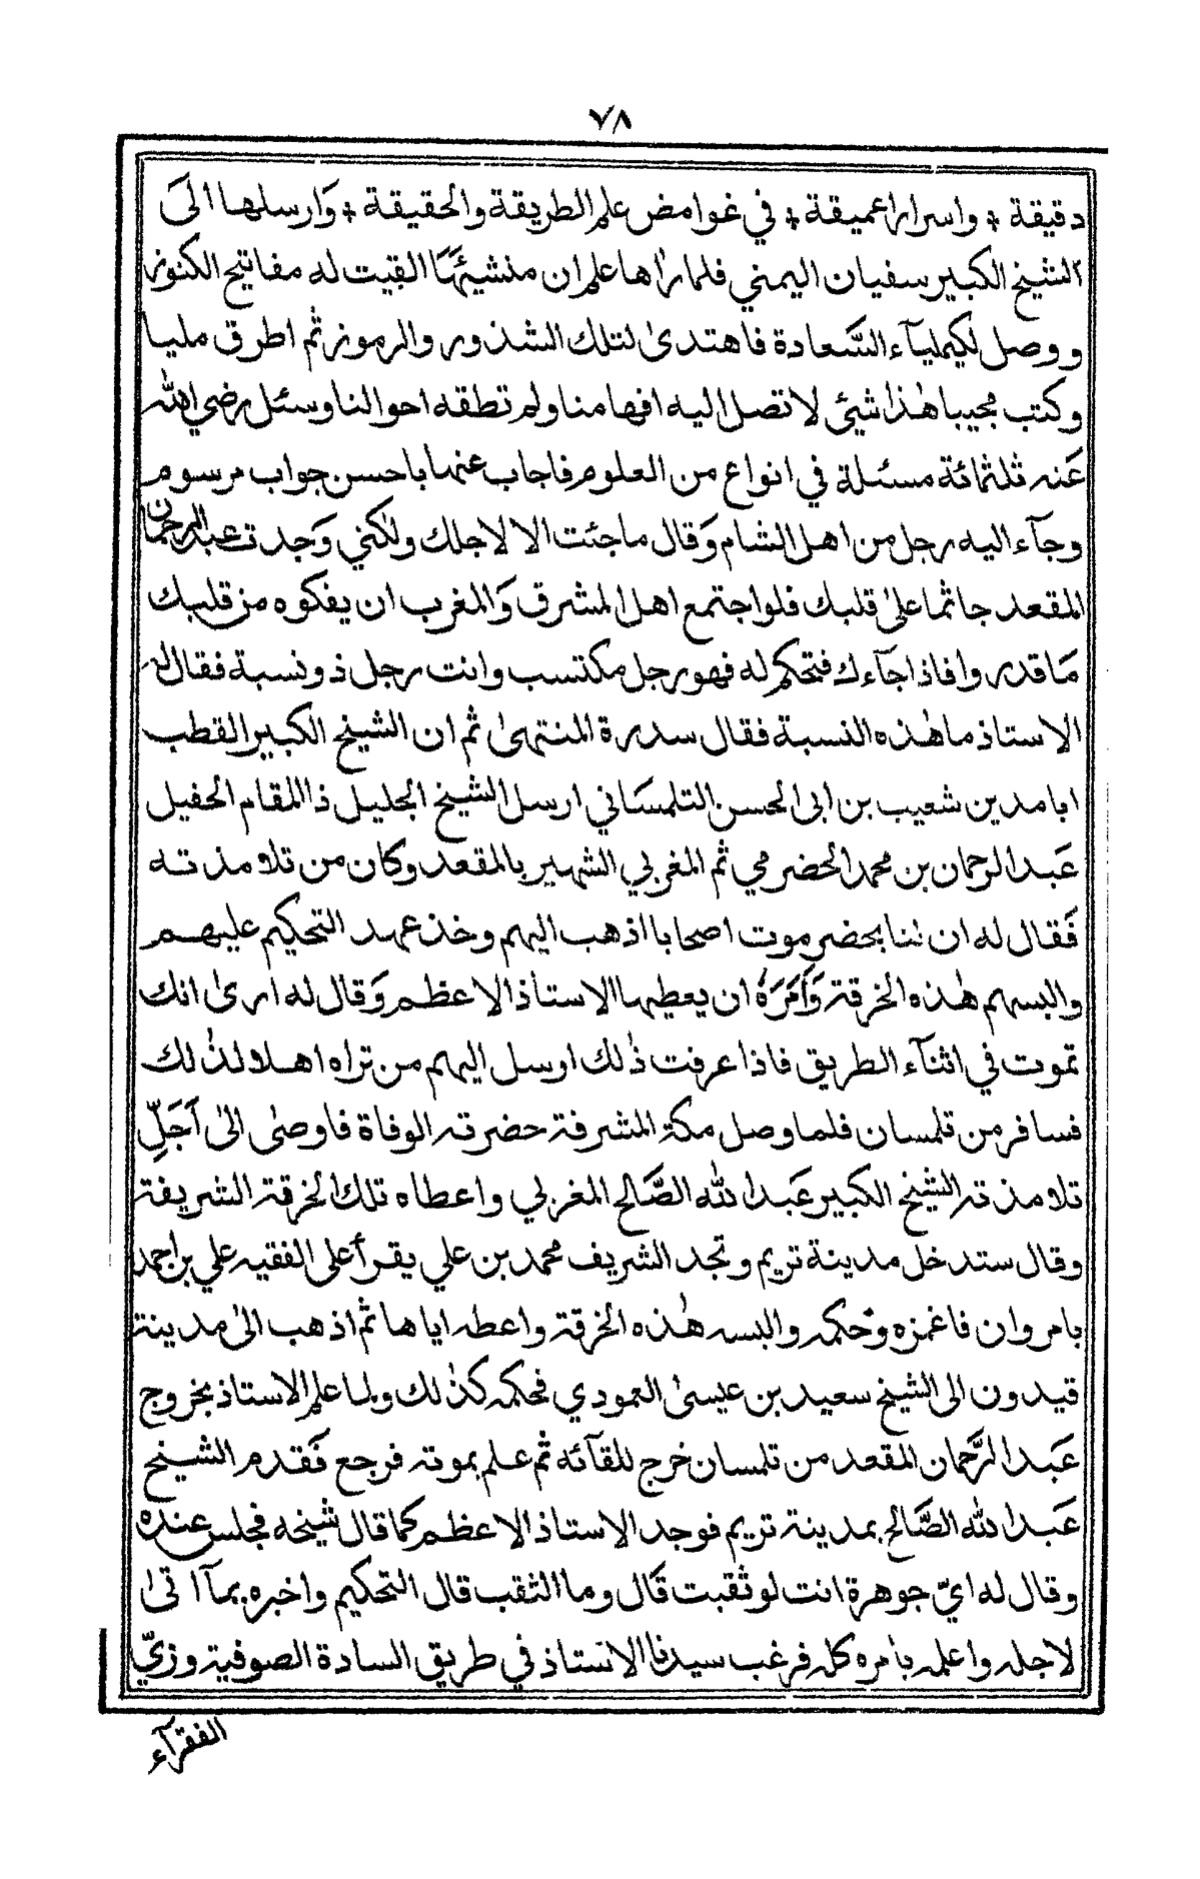 ٧٨
دقيقة * واسرارا عميقة * في غوامض علم الطريقة والحقيقة * وَارسلها الىَ
الشيخ الكبير سفيان اليمني فلما راٰها علم ان منشيئَهَا القيت له مفاتيح الكنوز
ووصل لكيمياء السَّعادة فاهتدىٰ لتلك الشذور والرموز ثم اطرق مليا
وكتب مجيبا هٰذا شيئ لا تصل اليه افهامنا ولم تطقه احوالنا وسئل رضي الله
عَنه ثلثمائة مسئلة في انواع من العلوم فاجاب عنها باحسن جواب مرسوم
وجآء اليه رجل من اهل الشام وَقال ماجئت الا لاجلك ولٰكني وَجدت عبد الرحمان
المقعد جاثما علىٰ قلبك فلو اجتمع اهل المشرق وَالمغرب ان يفكوه من قلبك
مَا قدروا فاذا جآءك فتحكم له فهو رجل مكتسب وانت رجل ذو نسبة فقال له
الاستاذ ما هٰذه النسبة فقال سدرة المنتهىٰ ثم ان الشيخ الكبير القطب
ابا مدين شعيب بن ابى الحسن التلمسَاني ارسل الشيخ الجليل ذا المقام الحفيل
عَبد الرحمان بن محمد الحضرمي ثم المغربي الشهير بالمقعد وكان من تلامذته
فَقال له ان لنا بحضرموت اصحابا اذهب اليهم وخذ عهد التحكيم عليهم
والبسهم هٰذه الخرقة وَأمَرَهُ ان يعطيها الاستاذ الاعظم وَقال له ارىٰ انك
تموت في اثنآء الطريق فاذا عرفت ذٰلك ارسل اليهم من تراه اهلا لذٰلك
فسافر من تلمسان فلما وصل مكة المشرفة حضرته الوفاة فاوصٰى الىٰ اَجَلِّ
تلامذته الشيخ الكبير عَبد الله الصَّالح المغربي واعطاه تلك الخرقة الشريفة
وقال ستدخل مدينة تريم وتجد الشريف محمد بن علي يقرأ على الفقيه علي بن احمد
بامروان فاغمزه وحكمه والبسه هٰذه الخرقة واعطه اياها ثم اذهب الىٰ مدينة
قيدون الى الشيخ سعيد بن عيسىٰ العمودي فحكمه كذٰلك ولما علم الاستاذ بخروج
عَبد الرَّحمان المقعد من تلمسان خرج للقآئه ثم علم بموته فرجع فَقدم الشيخ
عَبد الله الصَّالح بمدينة تريم فوجد الاستاذ الاعظم كما قال شيخه فجلس عنده
وقال له ايّ جوهرة انت لو ثقبت قَال وما الثقب قال التحكيم واخبره بمآ اتىٰ
لاجله واعلمه بامره كله فرغب سيدنا الاستاذ في طريق السادة الصوفية وزيّ
الفقرآء